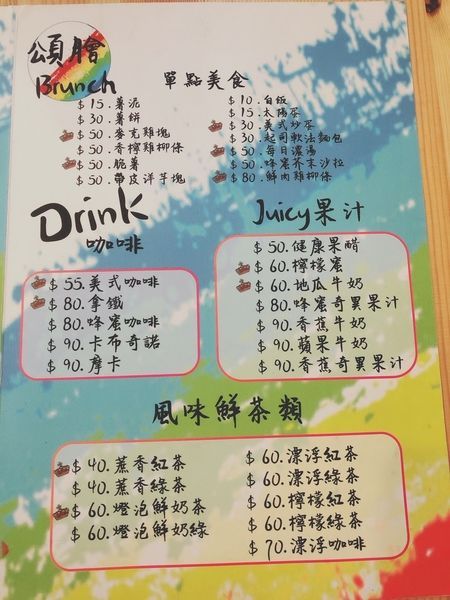 頌膾
Brunch
單點美食
$15.薯泥
$30.薯餅
$50.麥克雞塊
$50.香檸雞柳條
$50.脆薯
$50.帶皮洋芋塊
$10.白飯
$15.太陽蛋
$30.美式炒蛋
$30.起司軟法麵包
$50.每日濃湯
$50.蜂蜜芥末沙拉
$80.鮮肉雞柳條
Drink
咖啡
$55.美式咖啡
$80.拿鐵
$80.蜂蜜咖啡
$90.卡布奇諾
$90.摩卡
Juicy果汁
$50.健康果醋
$60.檸檬蜜
$60.地瓜牛奶
$80.蜂蜜奇異果汁
$90.香蕉牛奶
$90.蘋果牛奶
$90.香蕉奇異果汁
風味鮮茶類
$40.蔗香紅茶
$40.蔗香綠茶
$60.燈泡鮮奶茶
$60.燈泡鮮奶綠
$60.漂浮紅茶
$60.漂浮綠茶
$60.檸檬紅茶
$60.檸檬綠茶
$70.漂浮咖啡